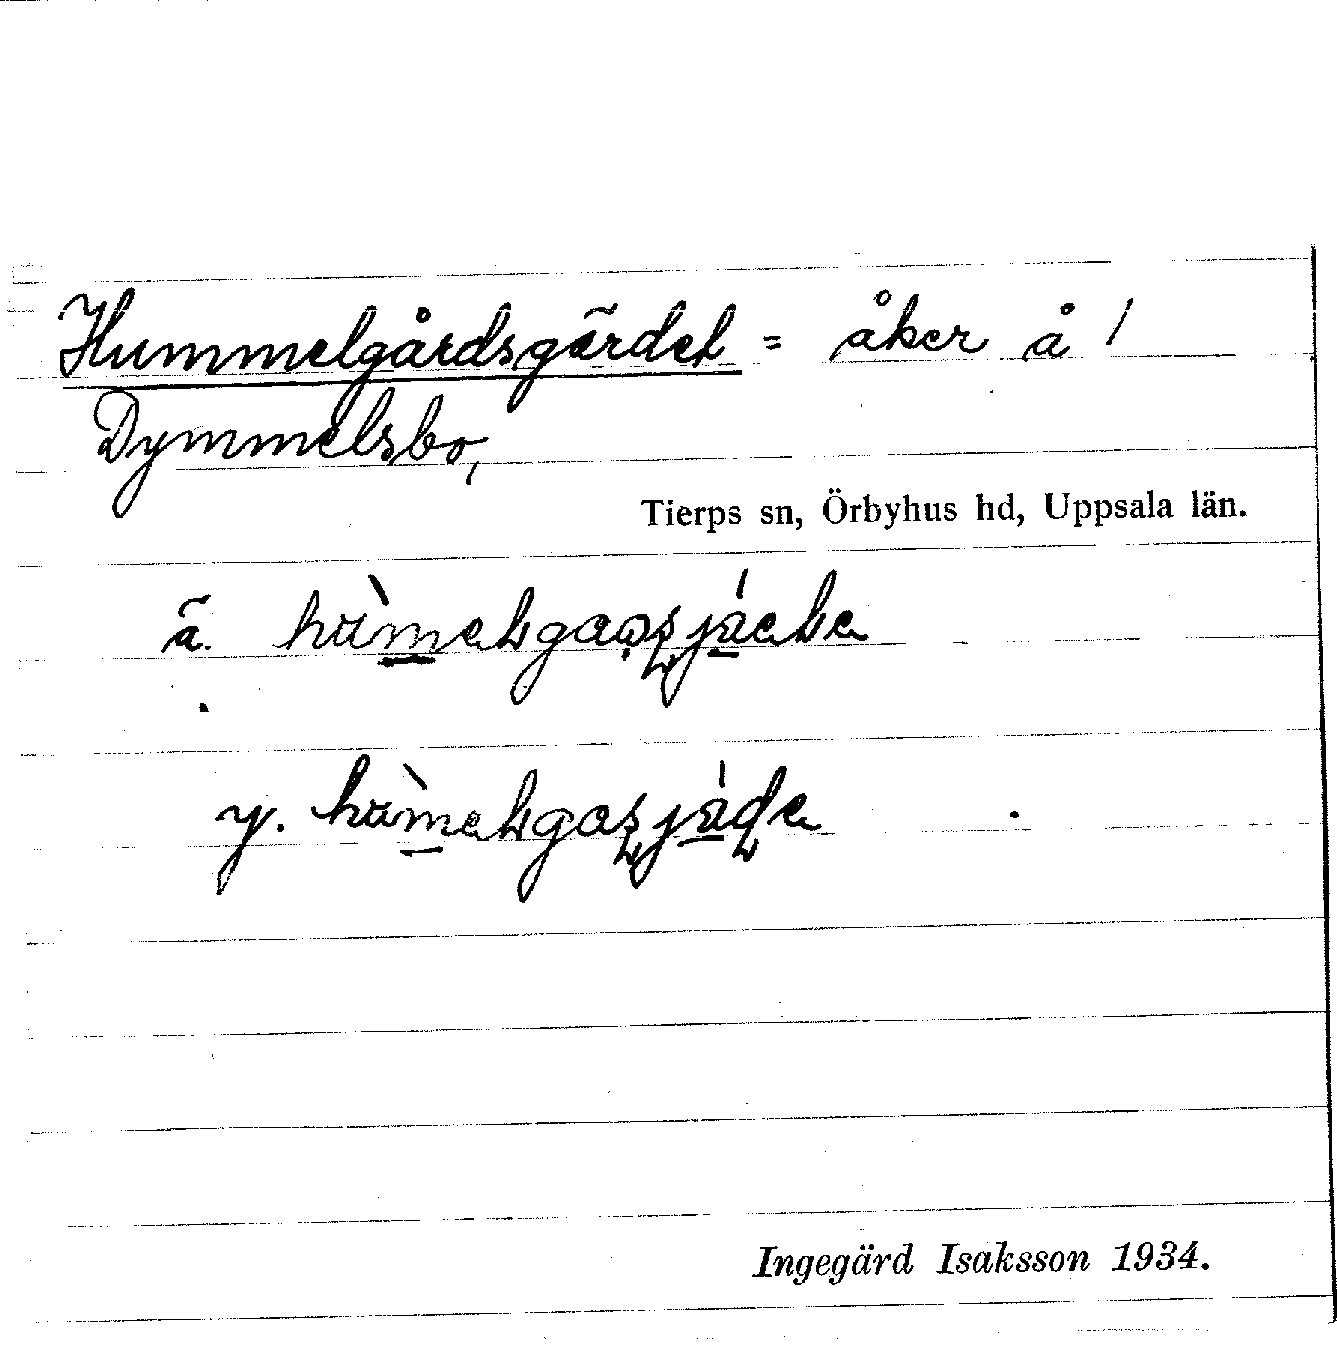 Hummelgårdsgärdet = åker å /
Dymmelsbo,
Tierps sn, Örbyhus hd, Uppsala län.
ä.
y.
Ingegärd Isaksson 1934.